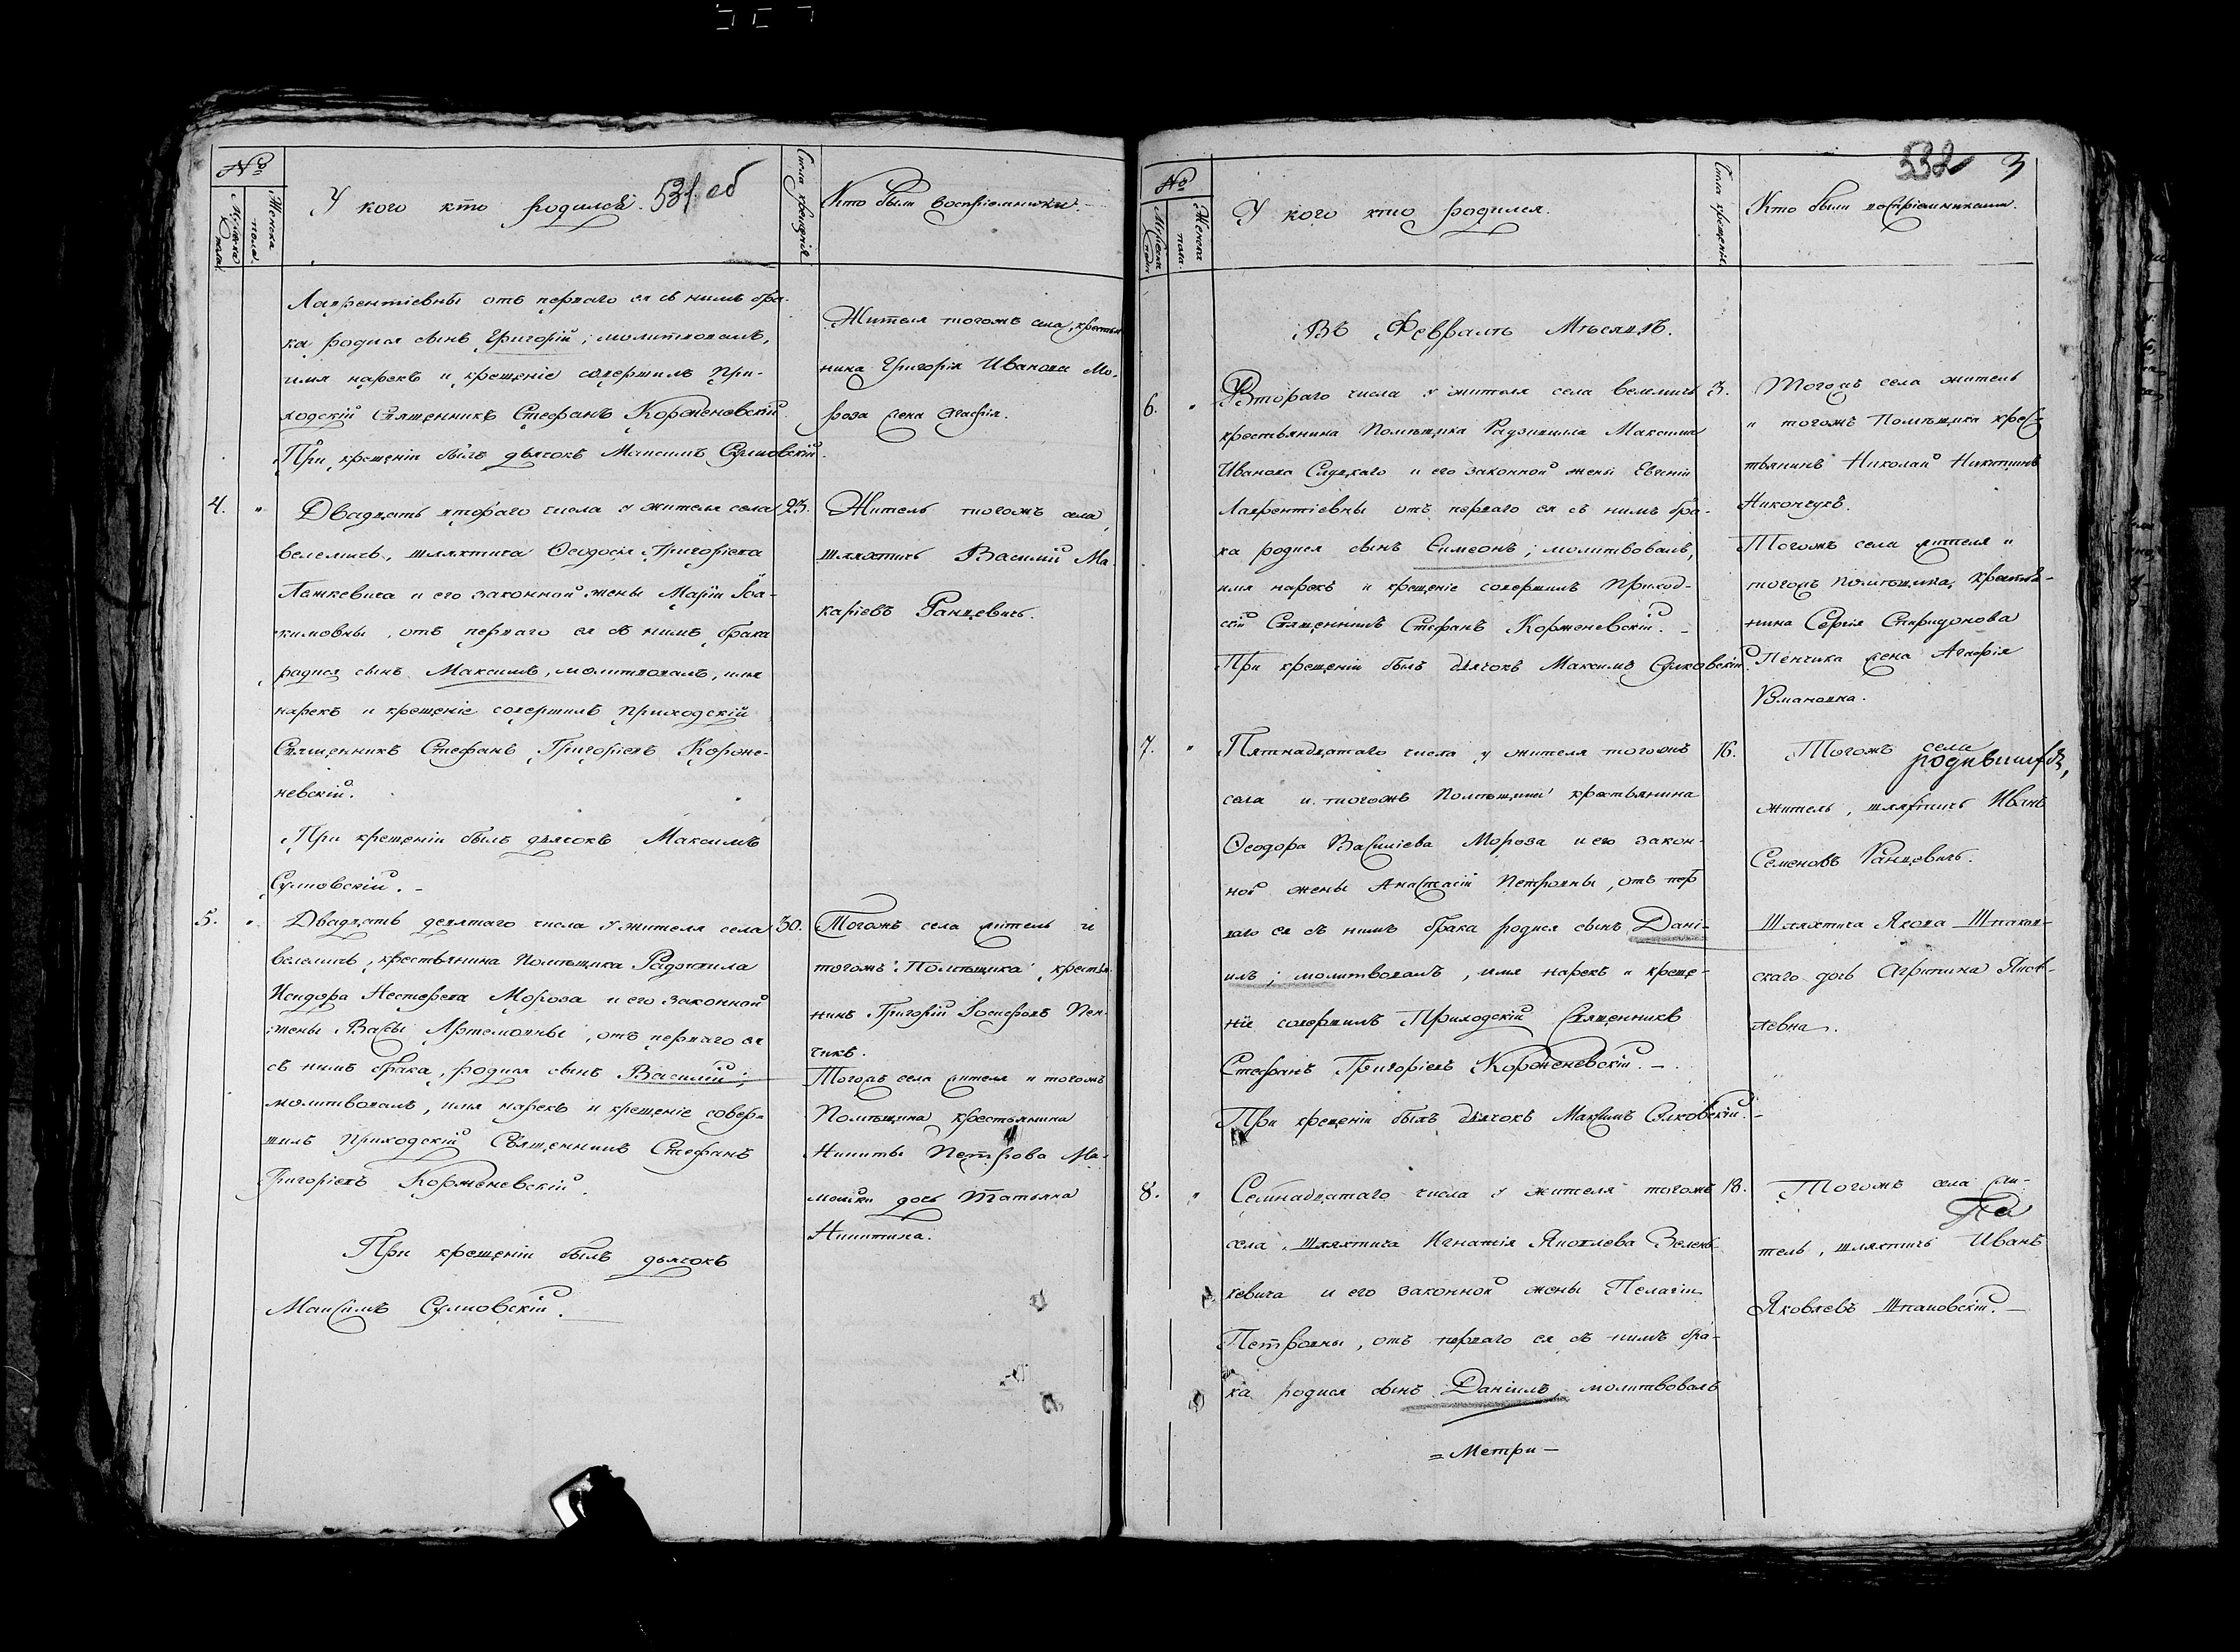 №
Мужеска пола
Женска пола.
У кого кто родился.
531 об
Числа крещенія
Кто были воспріемники.
Лаврентіевны отъ перваго ея съ нимъ бра-
ка родися сынъ Григорій; молитвовалъ,
имя нарекъ и крещеніе совершилъ При-
ходскій Священникъ Стефанъ Корженевскій.
При крещеніи былъ дьячокъ Максимъ Сулковскій.
Жителя тогожъ села, крестья
нина Григорія Иванова Мо-
роза жена Агафія.
4. „ Двадцать втораго числа у жителя села 23.
Велемичь, шляхтича Ѳеодосія Григоріева
и его законной жены Маріи Іоа-
кимовны, отъ перваго ея съ нимъ брака
родися сынъ Максимъ, молитвовалъ, имя
нарекъ и крещеніе совершилъ приходскій
Священникъ Стефанъ Григоріевъ Короже-
невскій.
При крещеніи былъ дьячокъ Максимъ
Сулковскій. -
Житель тогожъ села,
шляхтичь Василій Ма-
каріевъ Ранцевичь.
5. „ Двадцать девятаго числа у жителя села 30.
Велемичь, крестьянина Помѣщика Радзивила
Исидора Нестерева Мороза и его законной
жены Вассы Артемовны, отъ перваго ея
съ нимъ брака, родися сынъ Василій;
молитвовалъ, имя нарекъ и крещеніе совер-
шилъ Приходскій Священникъ Стефанъ
Григоріевъ Корженевскій.
При крещеніи былъ дьячокъ
Максимъ Сулковскій.
Тогожъ села житель и
тогожъ Помѣщика, крестья-
нинъ Григорій Іосифовъ Пен-
чикъ.
Тогожъ села жителя и тогожъ
Помѣщика крестьянина
Никиты Петрова Ма-
дочь Татьяна
Никитина.
532 3
№
Мужеска пола
Женска пола.
У кого кто родился.
Числа крещенія
Кто были воспріемниками.
Въ Февралѣ Мѣсяцѣ.
6. „ Втораго числа у жителя села Велемичь 3.
крестьянина Помѣщика Радзивилла Максима
Иванова Слуцкаго и его законной жены Евгеніи
Лаврентіевны отъ перваго ея съ нимъ бра-
ка родися сынъ Симеонъ; молитвовалъ,
имя нарекъ и крещеніе совершилъ Приход-
скій Священникъ Стефанъ Корженевскій. -
При крещеніи былъ дьячокъ Максимъ Сулковскій.
Тогожъ села житель
и тогожъ Помѣщика крес-
тьянинъ Николай Никитинъ
Никончукъ.
Тогожъ села жителя и
тогожъ помѣщика, крестья-
нина Сергія Спиридонова
Пенчика жена Агафія
7. „ Пятнадцатаго числа у жителя тогожъ 16.
села и тогожъ Помѣщика крестьянина
Ѳеодора Василіева Мороза и его закон-
ной жены Анастасіи Петровны, отъ пер
ваго ея съ нимъ брака родися сынъ Дані-
илъ; молитвовалъ, имя нарекъ и креще-
ніе совершилъ Приходскій Священникъ
Стефанъ Григоріевъ Корженевскій. -
При крещеніи былъ дьячокъ Максимъ Сулковскій. -
Тогожъ села
родившихъ,
житель, шляхтичь Иванъ
Семеновъ Ранцевичь.
Шляхтича Якова Шпаков-
скаго дочь Агрипина Яков-
левна.
8. „ Семнадцатаго числа у жителя тогожъ 18.
села, шляхтича Игнатія Яковлева Зелень-
кевича и его законной жены Пелагіи
Петровны, отъ перваго ея съ нимъ бра-
ка родися сынъ Даніилъ, молитвовалъ
Тогожъ села жи-
тель, шляхтичь Иванъ
Яковлевъ Шпаковскій. -
= Метри -